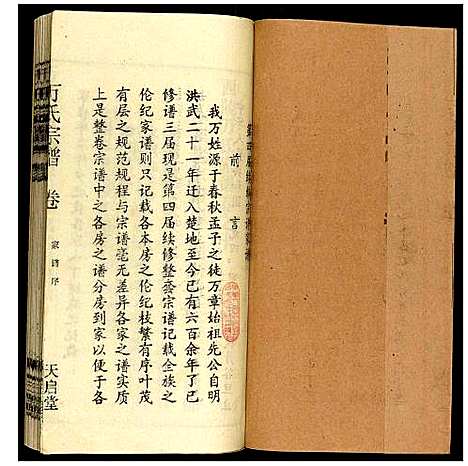 前言
我万姓源于春秋孟子之徒万章始祖先公自明
洪武二十一年入迁楚地至今已有六百余年了已
修谱三届现是第四届续修整套宗谱记载全族之
伦纪家谱则只记载各本房之伦纪枝繁有序叶茂
有层之规范规程与宗谱毫无差异各家之谱实质
上是整卷宗谱中之各房之谱分房到家以便于各
万氏宗谱
卷
家谱序
天启堂